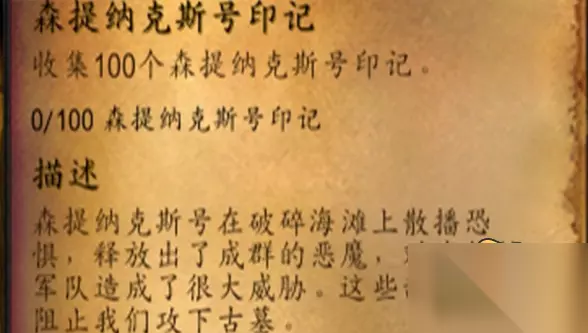 森提纳克斯号印记
收集100个森提纳克斯号印记。
0/100 森提纳克斯号印记
描述
森提纳克斯号在破碎海滩上散播恐
惧，释放出了成群的恶魔，
军队造成了很大威胁。这些
阻止我们攻下古墓。